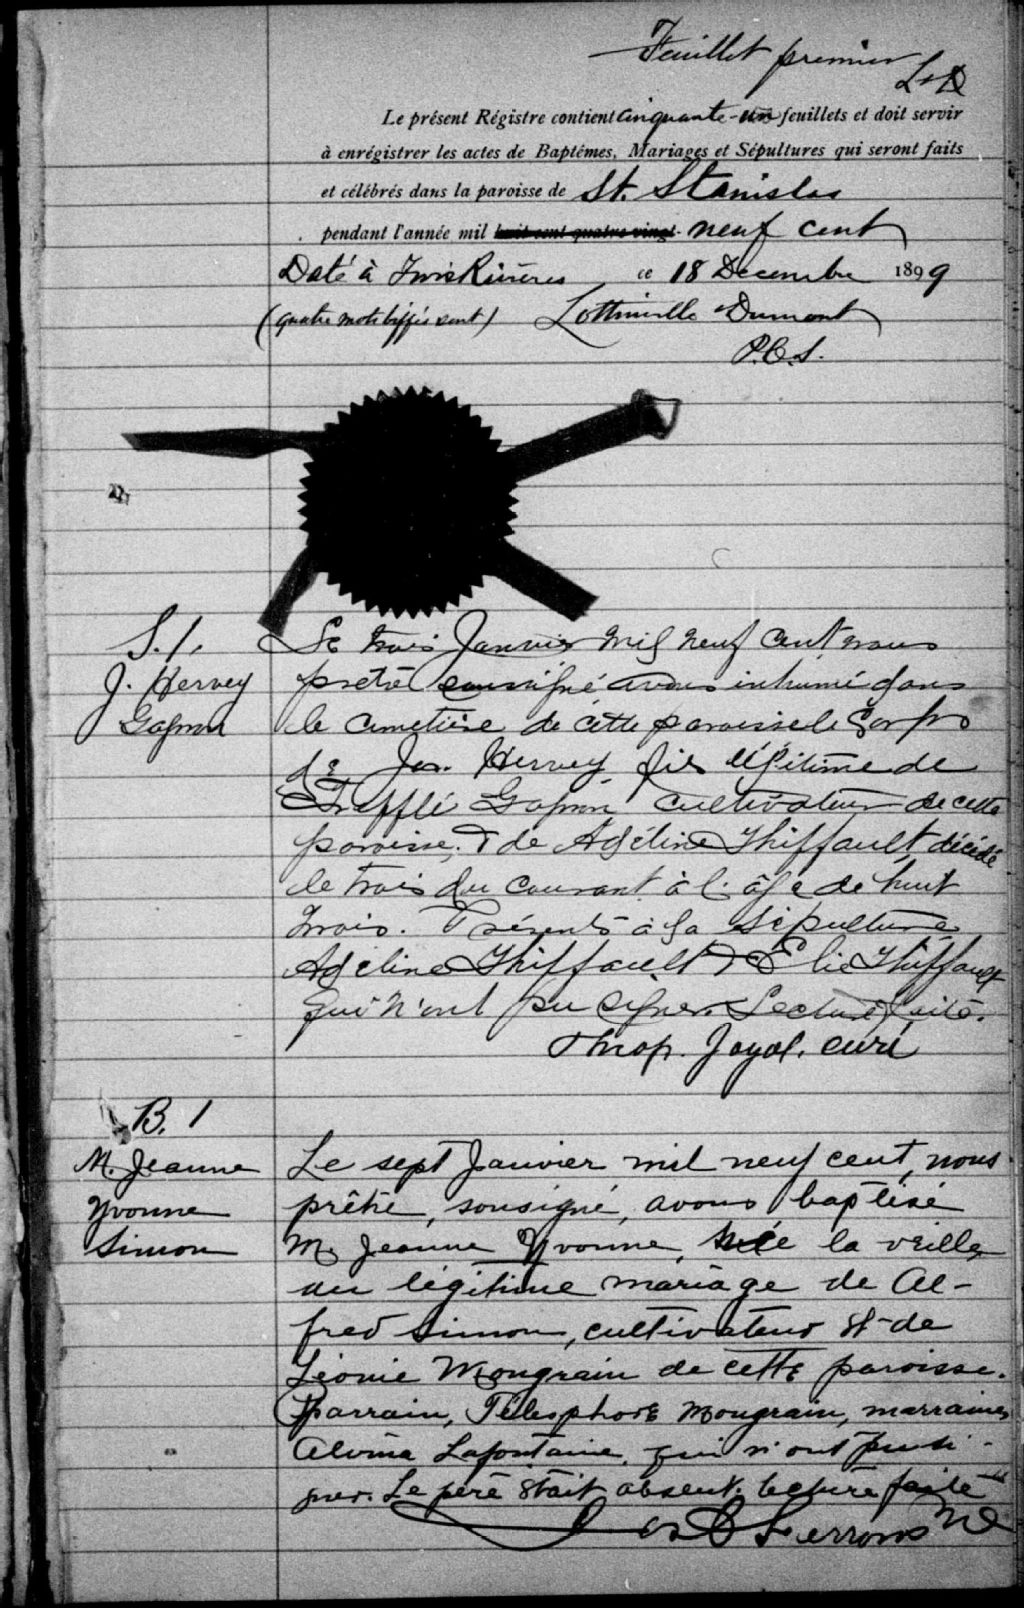 Feuillet premier
L & D
Le présent Régistre contient cinquante-un feuillets et doit servir
à enrégistrer les actes de Baptêmes, Mariages et Sépultures qui seront faits
et célébrés dans la paroisse de St. Stanislas
pendant l'année mil huit cent quatre vingt- neuf cent
Daté à Trois Rivières ce 18 Decembre 1899
(quatre mots biffés sont) Lottinville & Dumont
P.C.S.
S. 1.
J. Hervey
Gagnon
Le trois Janvier mil neuf cent nous
prêtre soussigné avons inhumé dans
le cimetière de cette paroisse le corps
de Jos. Hervey fils légitime de
Trefflé Gagnon cultivateur de cette
paroisse, & de Adéline Thiffault, décédé
le trois du courant à l'âge de huit
mois. Présents à la sépulture
Adeline Thiffault & Elie Thiffault
qui n'ont pu signer. Lecture faite.
Thop. Joyal. curé
B. 1
M. Jeanne
Yvonne
Simon
Le sept Janvier mil neuf cent, nous
prêtre, sousigné, avons baptisé
M. Jeanne Yvonne, née la veille
du légitime mariage de Al-
fred Simon, cultivateur et de
Léonie Mongrain de cette paroisse.
Parrain, Télesphore Mongrain, marraine,
Alvina Lafontaine, qui n'ont pu si-
gner. Le père était absent. lecture faite
Ferron